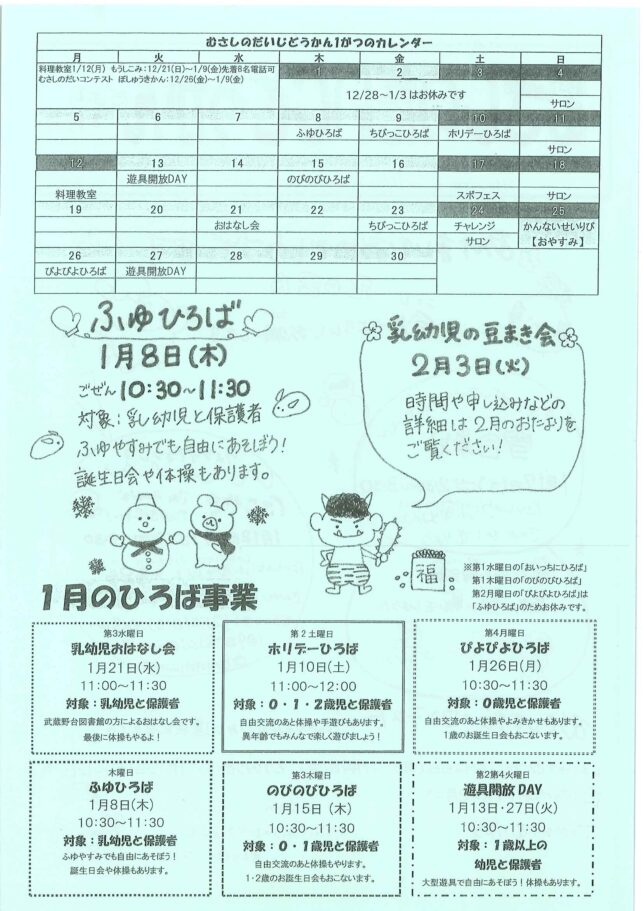 むさしのだいじどうかん1がつのカレンダー
月 火 水 木 金 土 日
料理教室1/12(月) もうしこみ:12/21(日)~1/9(金)先着8名電話可
むさしのだいコンテスト ぼしゅうきかん:12/26(金)~1/9(金)
1 2 3 4
12/28~1/3はお休みです
サロン
5 6 7 8 9 10 11
ふゆひろば ちびっこひろば ホリデーひろば
サロン
12 13 14 15 16 17 18
遊具開放DAY のびのびひろば
料理教室 スポフェス サロン
19 20 21 22 23 24 25
おはなし会 ちびっこひろば チャレンジ かんないせいりび
サロン 【おやすみ】
26 27 28 29 30
ぴよぴよひろば 遊具開放DAY
ふゆひろば
1月8日(木)
ごぜん10:30~11:30
対象:乳幼児と保護者
ふゆやすみでも自由にあそぼう!
誕生日会や体操もあります。
乳幼児の豆まき会
2月3日(火)
時間や申し込みなどの
詳細は2月のおたよりを
ご覧ください!
福
※第1水曜日の「おいっちにひろば」
第1木曜日の「のびのびひろば」
第2月曜日の「ぴよぴよひろば」は
「ふゆひろば」のためお休みです。
1月のひろば事業
第3水曜日
乳幼児おはなし会
1月21日(水)
11:00~11:30
対象:乳幼児と保護者
武蔵野台図書館の方によるおはなし会です。
最後に体操もやるよ!
第2土曜日
ホリデーひろば
1月10日(土)
11:00~12:00
対象:0・1・2歳児と保護者
自由交流のあと体操や手遊びもあります。
異年齢でもみんなで楽しく遊びましょう!
第4月曜日
ぴよぴよひろば
1月26日(月)
10:30~11:30
対象:0歳児と保護者
自由交流のあと体操やよみきかせもあります。
1歳のお誕生日会もおこないます。
木曜日
ふゆひろば
1月8日(木)
10:30~11:30
対象:乳幼児と保護者
ふゆやすみでも自由にあそぼう!
誕生日会や体操もあります。
第3木曜日
のびのびひろば
1月15日(木)
10:30~11:30
対象:0・1歳児と保護者
自由交流のあと体操もやります。
1・2歳のお誕生日会もおこないます。
第2第4火曜日
遊具開放DAY
1月13日・27日(火)
10:30~11:30
対象:1歳以上の
幼児と保護者
大型遊具で自由にあそぼう!体操もあります。